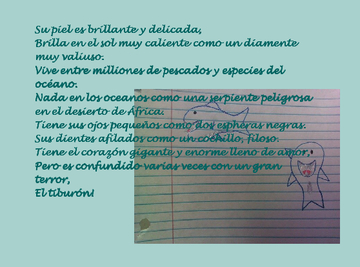 Su piel es brillante y delicada,
Brilla en el sol muy caliente como un diamente
muy valiuso.
Vive entre milliones de pescados y especies del
océano.
Nada en los oceanos como una serpiente peligrosa
en el desierto de África.
Tiene sus ojos pequeños como dos espheras negras.
Sus dientes afilados como un cochillo, filoso.
Tiene el corazón gigante y enorme lleno de amor,
Pero es confundido varias veces con un gran
terror,
El tiburón!